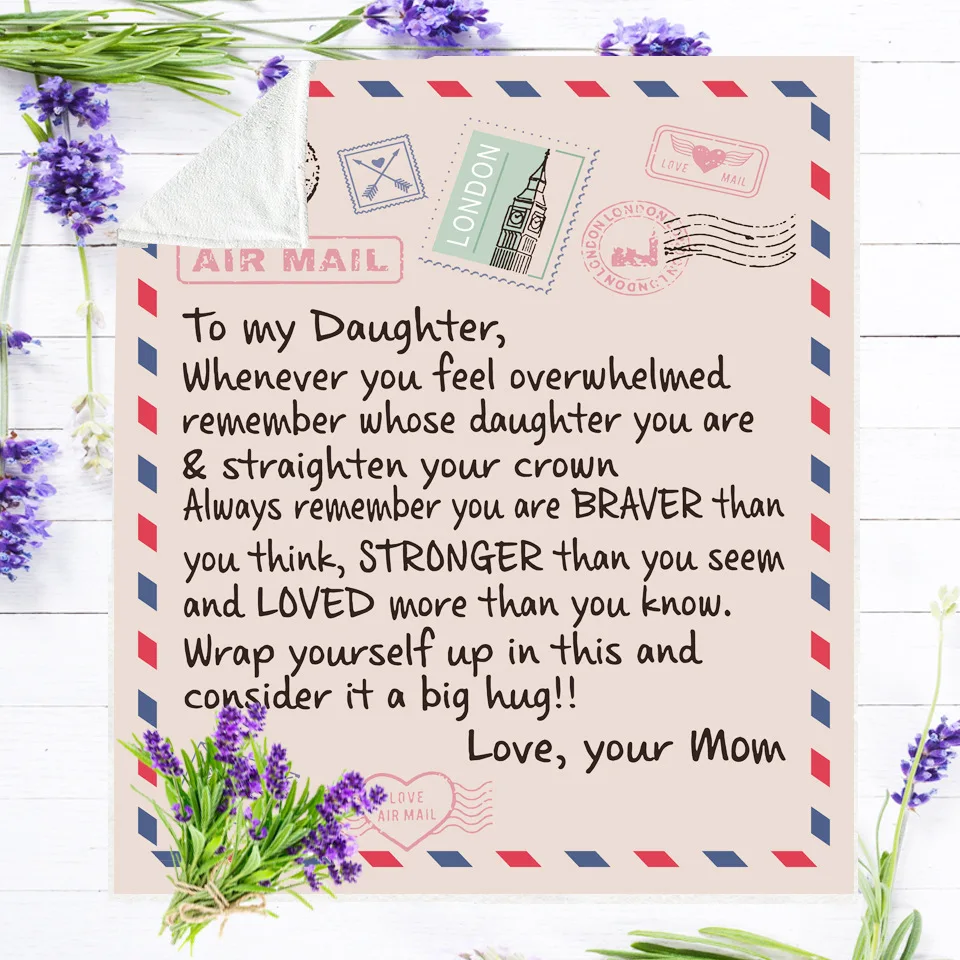 LONDON
LOVE MAIL
LONDON LONDON LONDON LONDON
AIR MAIL
To my Daughter,
Whenever you feel overwhelmed
remember whose daughter you are
& straighten your crown
Always remember you are BRAVER than
you think, STRONGER than you seem
and LOVED more than you know.
Wrap yourself up in this and
consider it a big hug!!
Love, your Mom
LOVE
AIR MAIL